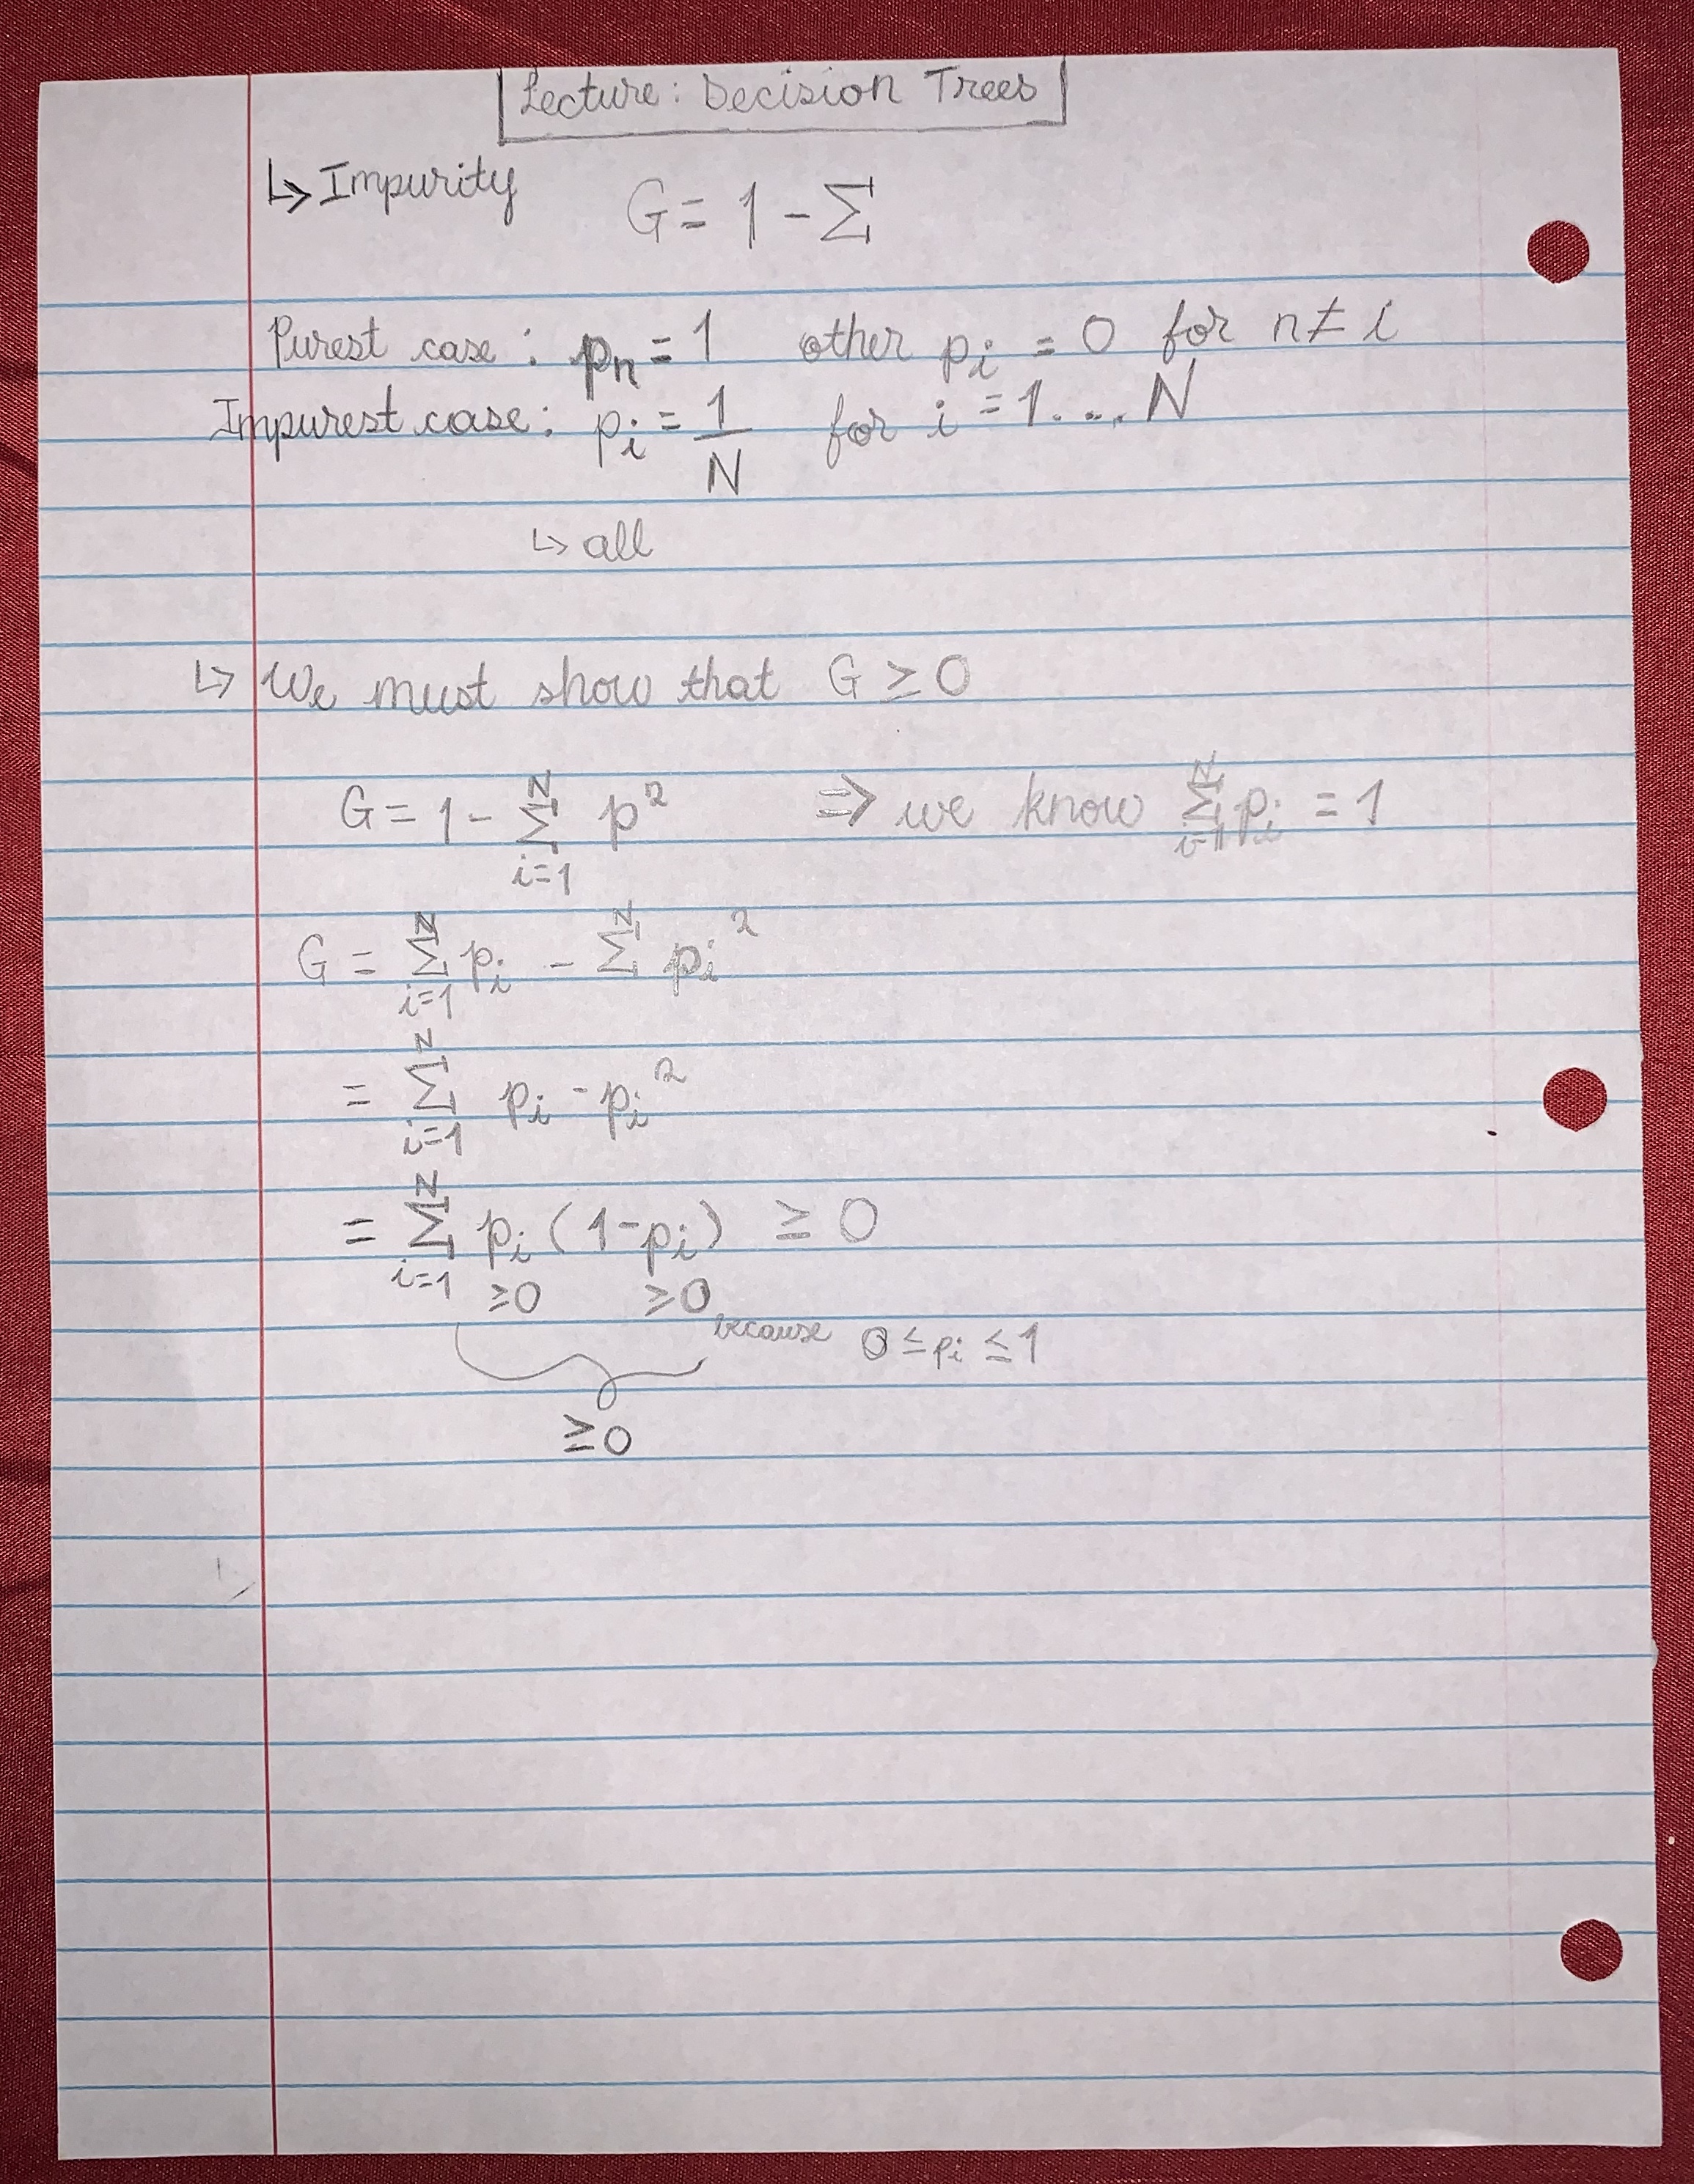 Lecture: Decision Trees
↳ Impurity G = 1 - Σ
Purest case : pₙ = 1 other pᵢ = 0 for n ≠ i
Impurest case : pᵢ = 1/N for i = 1 . . . . N
↳ all
↳ We must show that G ≥ 0
G = 1 - Σ_{i=1}^{N} p² ⇒ we know Σ_{i=1}^{N} pᵢ = 1
G = Σ_{i=1}^{N} pᵢ - Σ^{N} pᵢ²
= Σ_{i=1}^{N} pᵢ - pᵢ²
= Σ_{i=1}^{N} pᵢ (1 - pᵢ) ≥ 0
≥0 ≥0
because 0 ≤ pᵢ ≤ 1
≥0